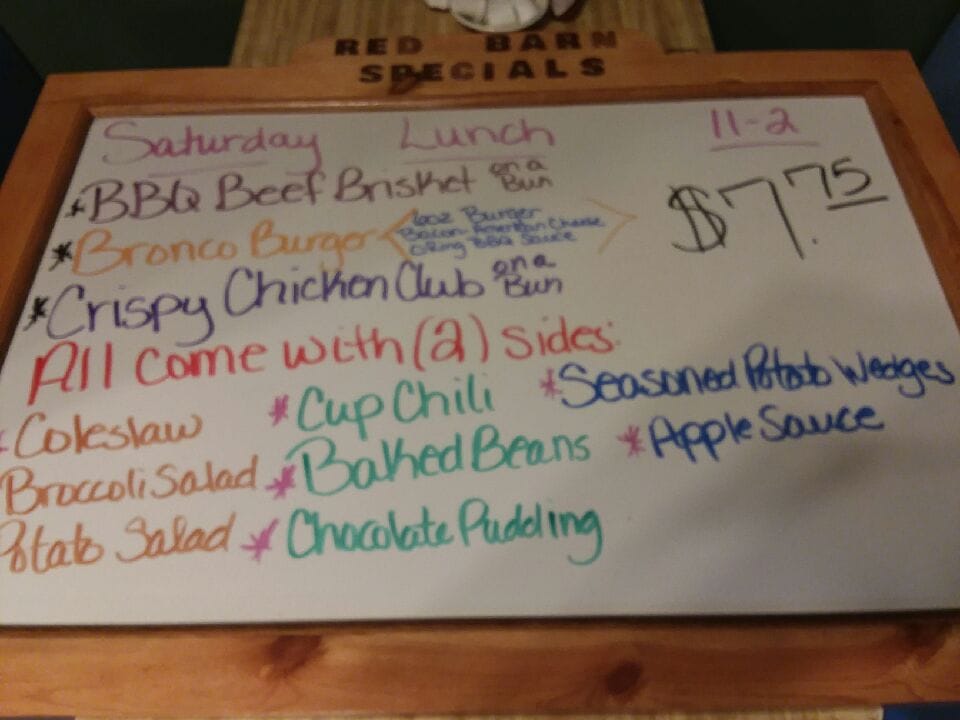 RED BARN
SPECIALS
Saturday Lunch 11-2
*BBQ Beef Brisket on a Bun
$7.75
*Bronco Burger
6oz Burger
Bacon-American Cheese
O Ring BBQ Sauce
*Crispy Chicken Club on a Bun
All come with (2) sides:
*Coleslaw *Cup Chili *Seasoned Potato Wedges
Broccoli Salad *Baked Beans *Apple Sauce
Potato Salad *Chocolate Pudding